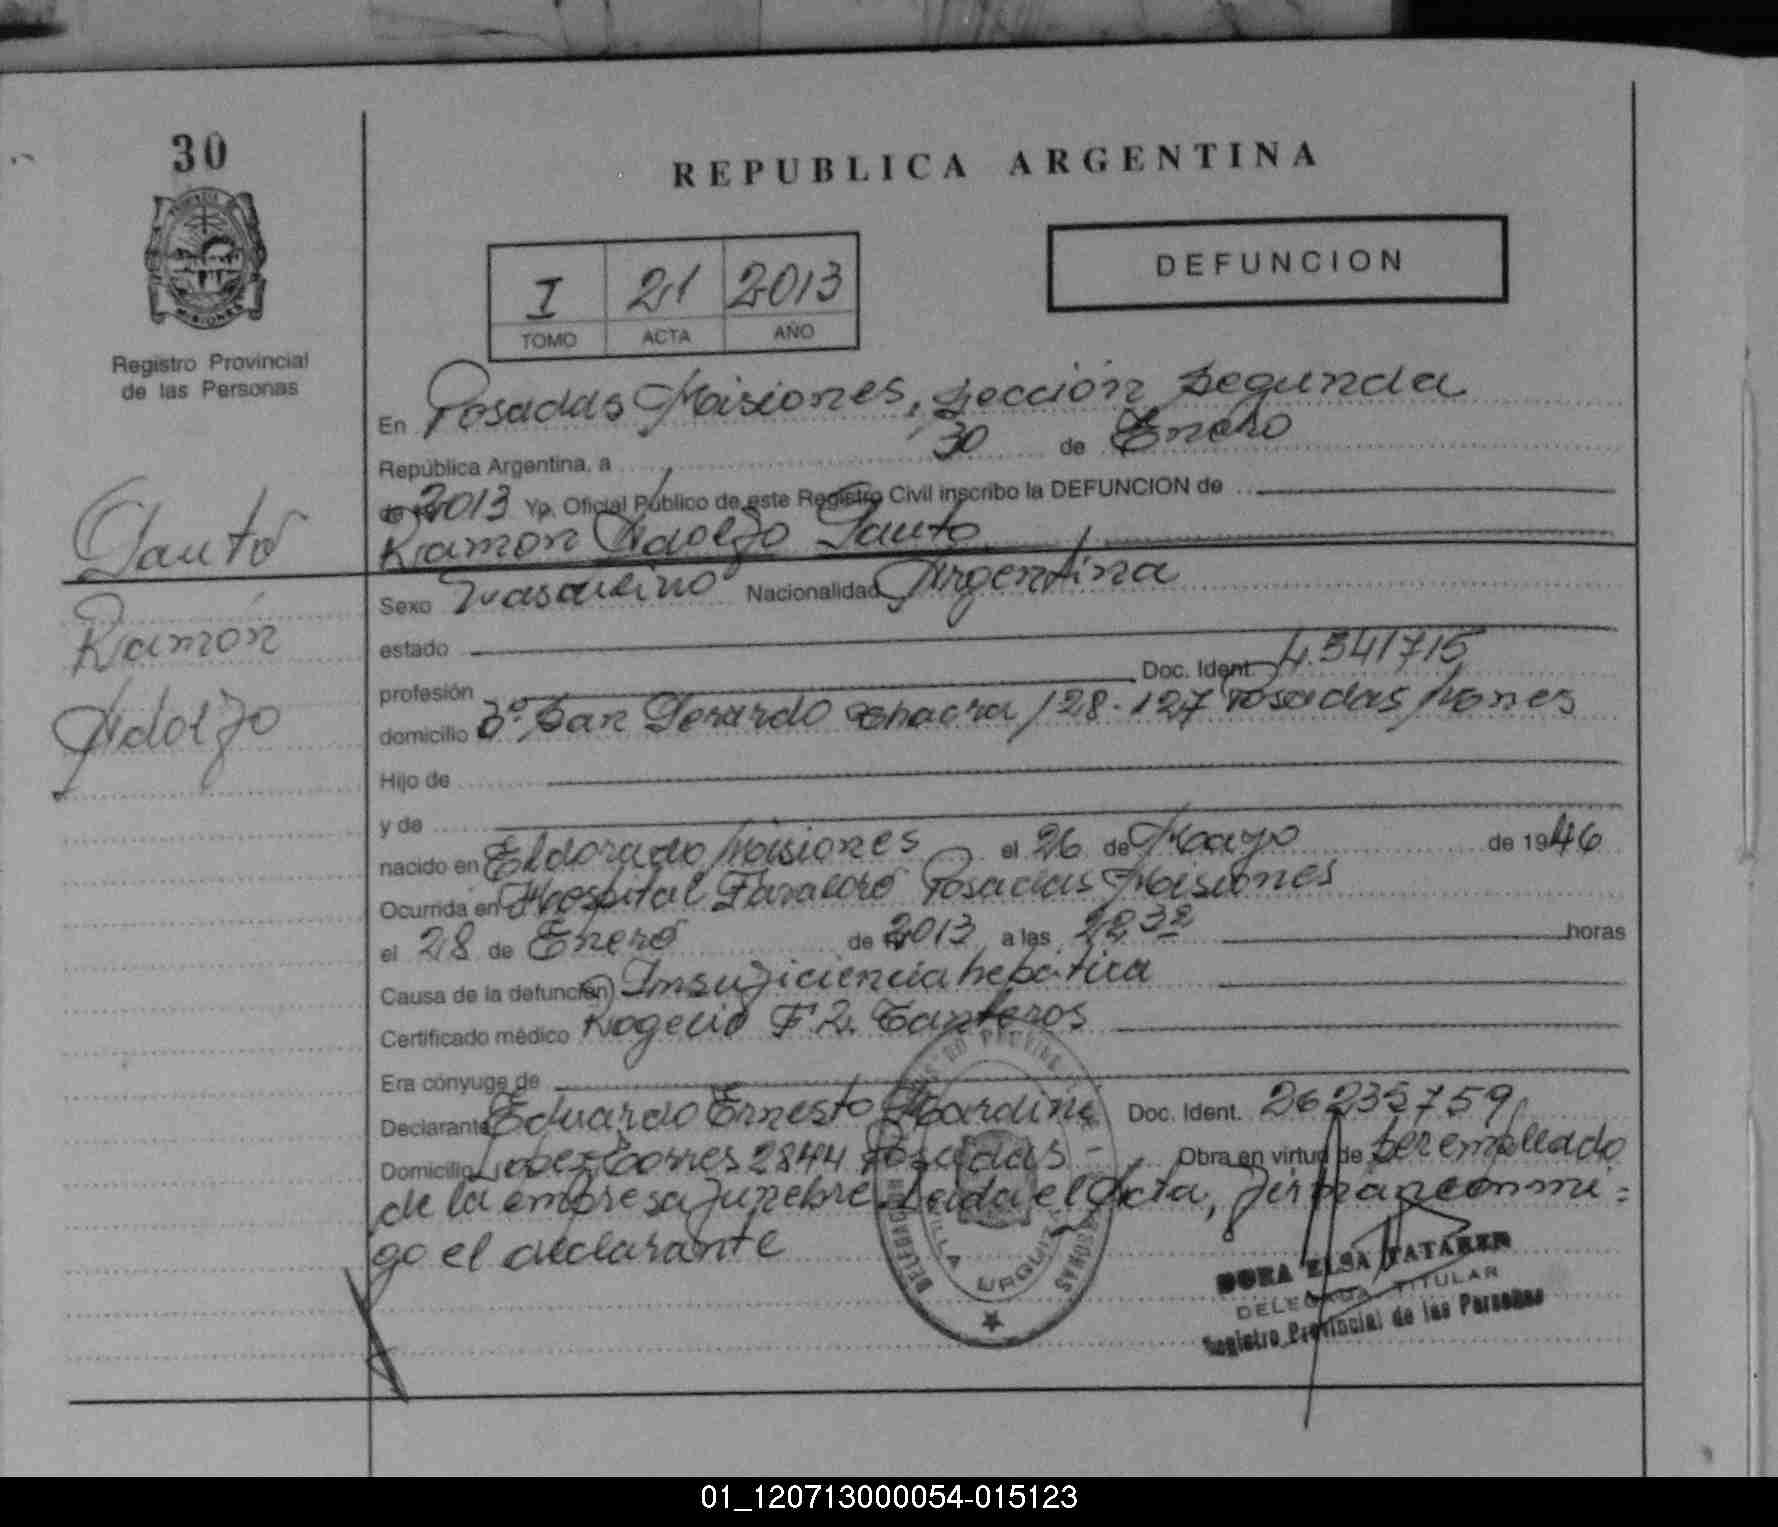 30
REPUBLICA ARGENTINA
DEFUNCION
I 21 2013
TOMO ACTA AÑO
Registro Provincial
de las Personas
MISIONES
En Posadas Misiones, sección segunda
República Argentina, a 30 de Enero
de 2013 Yo, Oficial Público de este Registro Civil inscribo la DEFUNCION de
Ramón Adolfo
Ramón
Adolfo
Sexo Masculino Nacionalidad Argentina
estado
profesión Doc. Ident. 4.541715
domicilio Bº San Gerardo chacra 128-127 Posadas Mones
Hijo de
y de
nacido en Eldorado Misiones el 26 de Mayo de 1946
Ocurrida en Hospital Posadas Misiones
el 28 de Enero de 2013 a las 22 32 horas
Causa de la defunción Insuficiencia hepática
Certificado médico Rogelio F Canteros
Era cónyuge de
Declarante Eduardo Ernesto Doc. Ident. 26235759
Domicilio Lopez Torres 2844 Posadas - Obra en virtud de ser empleado
de la empresa funebre. Leida el Acta, firman conmi=
go el declarante
VILLA URQUIZA
DORA ELSA TATAREN
DELEGADA TITULAR
Registro Provincial de las Personas
01_120713000054-015123